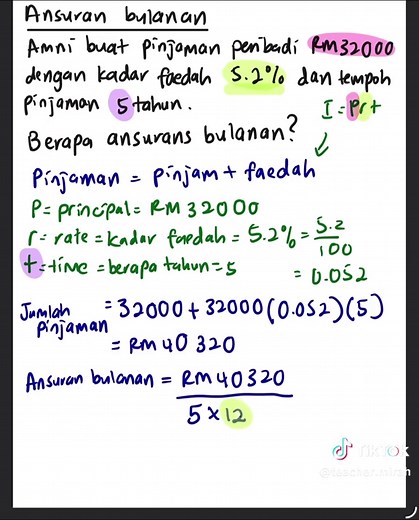 Ansuran bulanan
Amni buat pinjaman peribadi RM32000
dengan kadar faedah 5.2% dan tempoh
pinjaman 5 tahun.
I = Prt
Berapa ansurans bulanan?
Pinjaman = pinjam + faedah
P = principal = RM 32000
r = rate = kadar faedah = 5.2% = 5.2/100
t = time = berapa tahun = 5 = 0.052
Jumlah pinjaman = 32000 + 32000 (0.052)(5)
= RM 40 320
Ansuran bulanan = RM 40320
5 x 12
TikTok